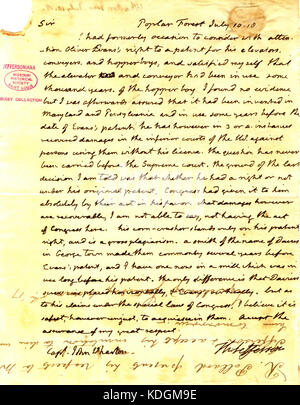 Sir
Poplar Forest July 10. 18
I had formerly occasion to consider with atten-
tion Oliver Evans's right to a patent for his elevators,
conveyors, and hopper boys, and satisfied myself that
the elevator and conveyor had been in use some
thousand years. of the hopper boy I found no evidence
but I was afterwards assured that it had been invented in
Maryland and Pensylvania and in use some years before the
date of Evans's patent. he has however in 3 or 4 instances
recovered damages in the inferior courts of the US. against
persons using them without his license. the question has never
been carried before the Supreme court. the ground of the last
decision I am told was that whether he had a right or not
under his original patent, Congress had given it to him
absolutely by their act in his favor. what damages however
are recoverable, I am not able to say, not having the act
of Congress here. his corn-crusher stands only on his patent
right, and is a gross plagiarism. a smith of the name of Davis
in George town made them commonly several years before
Evans's patent, and I have one now in a mill which was in
use long before his patent. the only difference is that Davis's
was placed horizontally, & Evans's vertically, but as
to his claims under the special law of Congress, I believe it is
safest, however unjust, to acquiesce in them. Accept the
assurance of my great respect.
Capt. John Wharton
Th: Jefferson
JEFFERSONIANA
MISSOURI
HISTORICAL
SOCIETY
SAINT LOUIS
BIXBY COLLECTION
alamy
KDGM9E